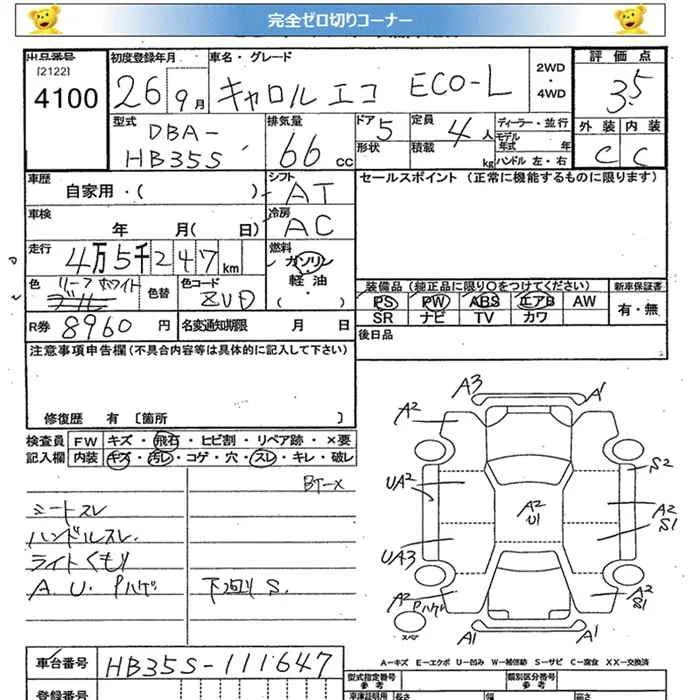 完全ゼロ切りコーナー
出品番号
[2122]
4100
初度登録年月
26年 9月
車名・グレード
キャロル エコ ECO-L
2WD
・
4WD
評価点
3.5
型式
DBA-
HB35S
排気量
66 cc
ドア 5
形状
定員 4人
積載 kg
ディーラー・並行
モデル
年式 年
ハンドル 左・右
外装 内装
C C
車歴
自家用・( )
シフト
AT
セールスポイント (正常に機能するものに限ります)
車検
年 月( 日)
冷房
AC
走行
4万5千247km
燃料
ガソリン
軽油
( ・ )
色
リーフホワイト
色替
色コード
ZVD
装備品 (純正品に限り〇をつけてください)
PS PW ABS エアB AW
SR ナビ TV カワ
新車保証書
有・無
R券 8960 円
名変通知期限 月 日
後日品
注意事項申告欄 (不具合内容等は具体的に記入して下さい)
修復歴 有 [箇所 ]
検査員 FW キズ・飛石・ヒビ割・リペア跡・×要
記入欄 内装 キズ・汚レ・コゲ・穴・スレ・キレ・破レ
BT-x
シートスレ
ハンドルスレ.
ライトくもり
A. U. Pハゲ 下廻り S.
A3 A1
A2
UA2 S2
A2
U1
A2
S1
UA3
A2
Pハゲ
A2
S1
スペア
A1 A1
A-キズ E-エクボ U-凹み W-補修跡 S-サビ C-腐食 XX-交換済
車台番号 HB35S-111647
登録番号
型式指定番号
参考
類別区分番号
参考
車庫証明用
長さ 幅 高さ